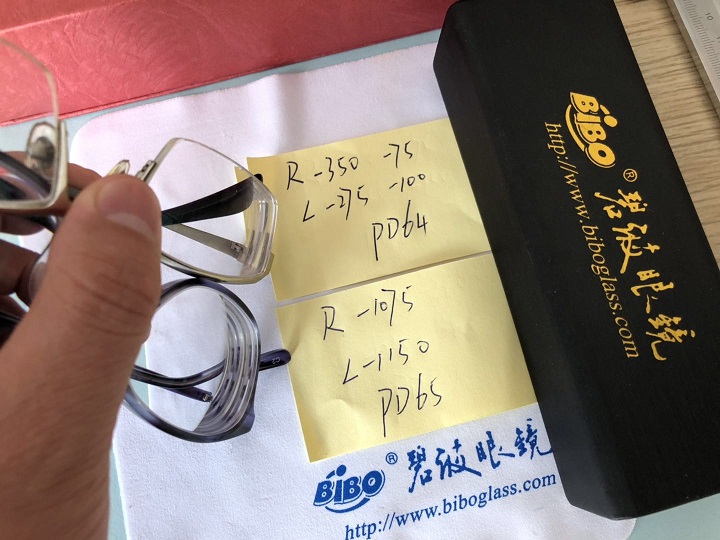 R -350 -75
L -275 -100
PD64
R -1075
L -1150
PD65
BiBO® 碧波眼镜
http://www.biboglass.com
BiBO ® 碧波眼镜
http://www.biboglass.com
10